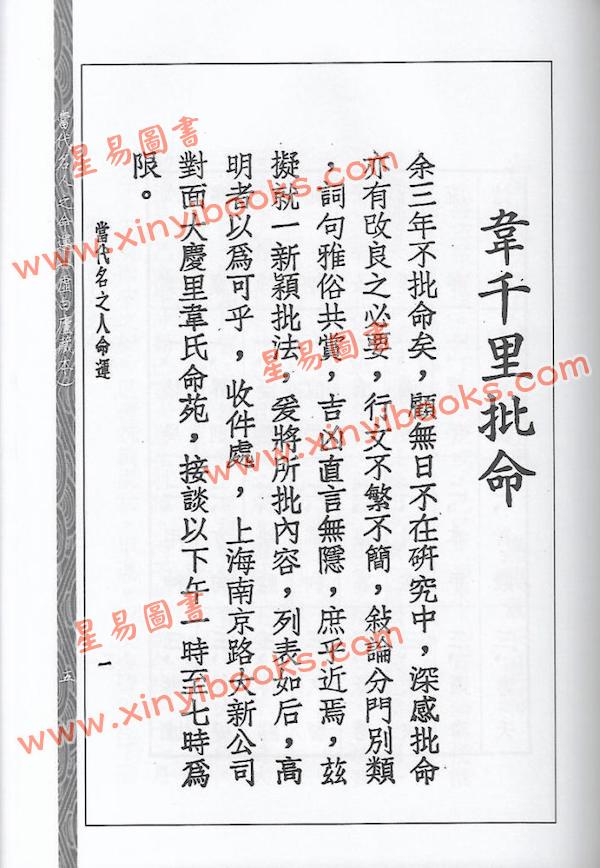 韋千里批命
余三年不批命矣，顧無日不在硏究中，深感批命
亦有改良之必要，行文不繁不簡，敍論分門別類
，詞句雅俗共賞，吉凶直言無隱，庶乎近焉，茲
擬就一新穎批法，爰將所批內容，列表如后，高
明者以爲可乎，收件處，上海南京路大新公司
對面大慶里韋氏命苑，接談以下午一時至七時爲
限。
當代名之人命運
一
當代名人之命運
藏本）
五
星易圖書
www.xinyibooks.com
星易圖書
www.xinyibooks.com
星易圖書
www.xinyibooks.com